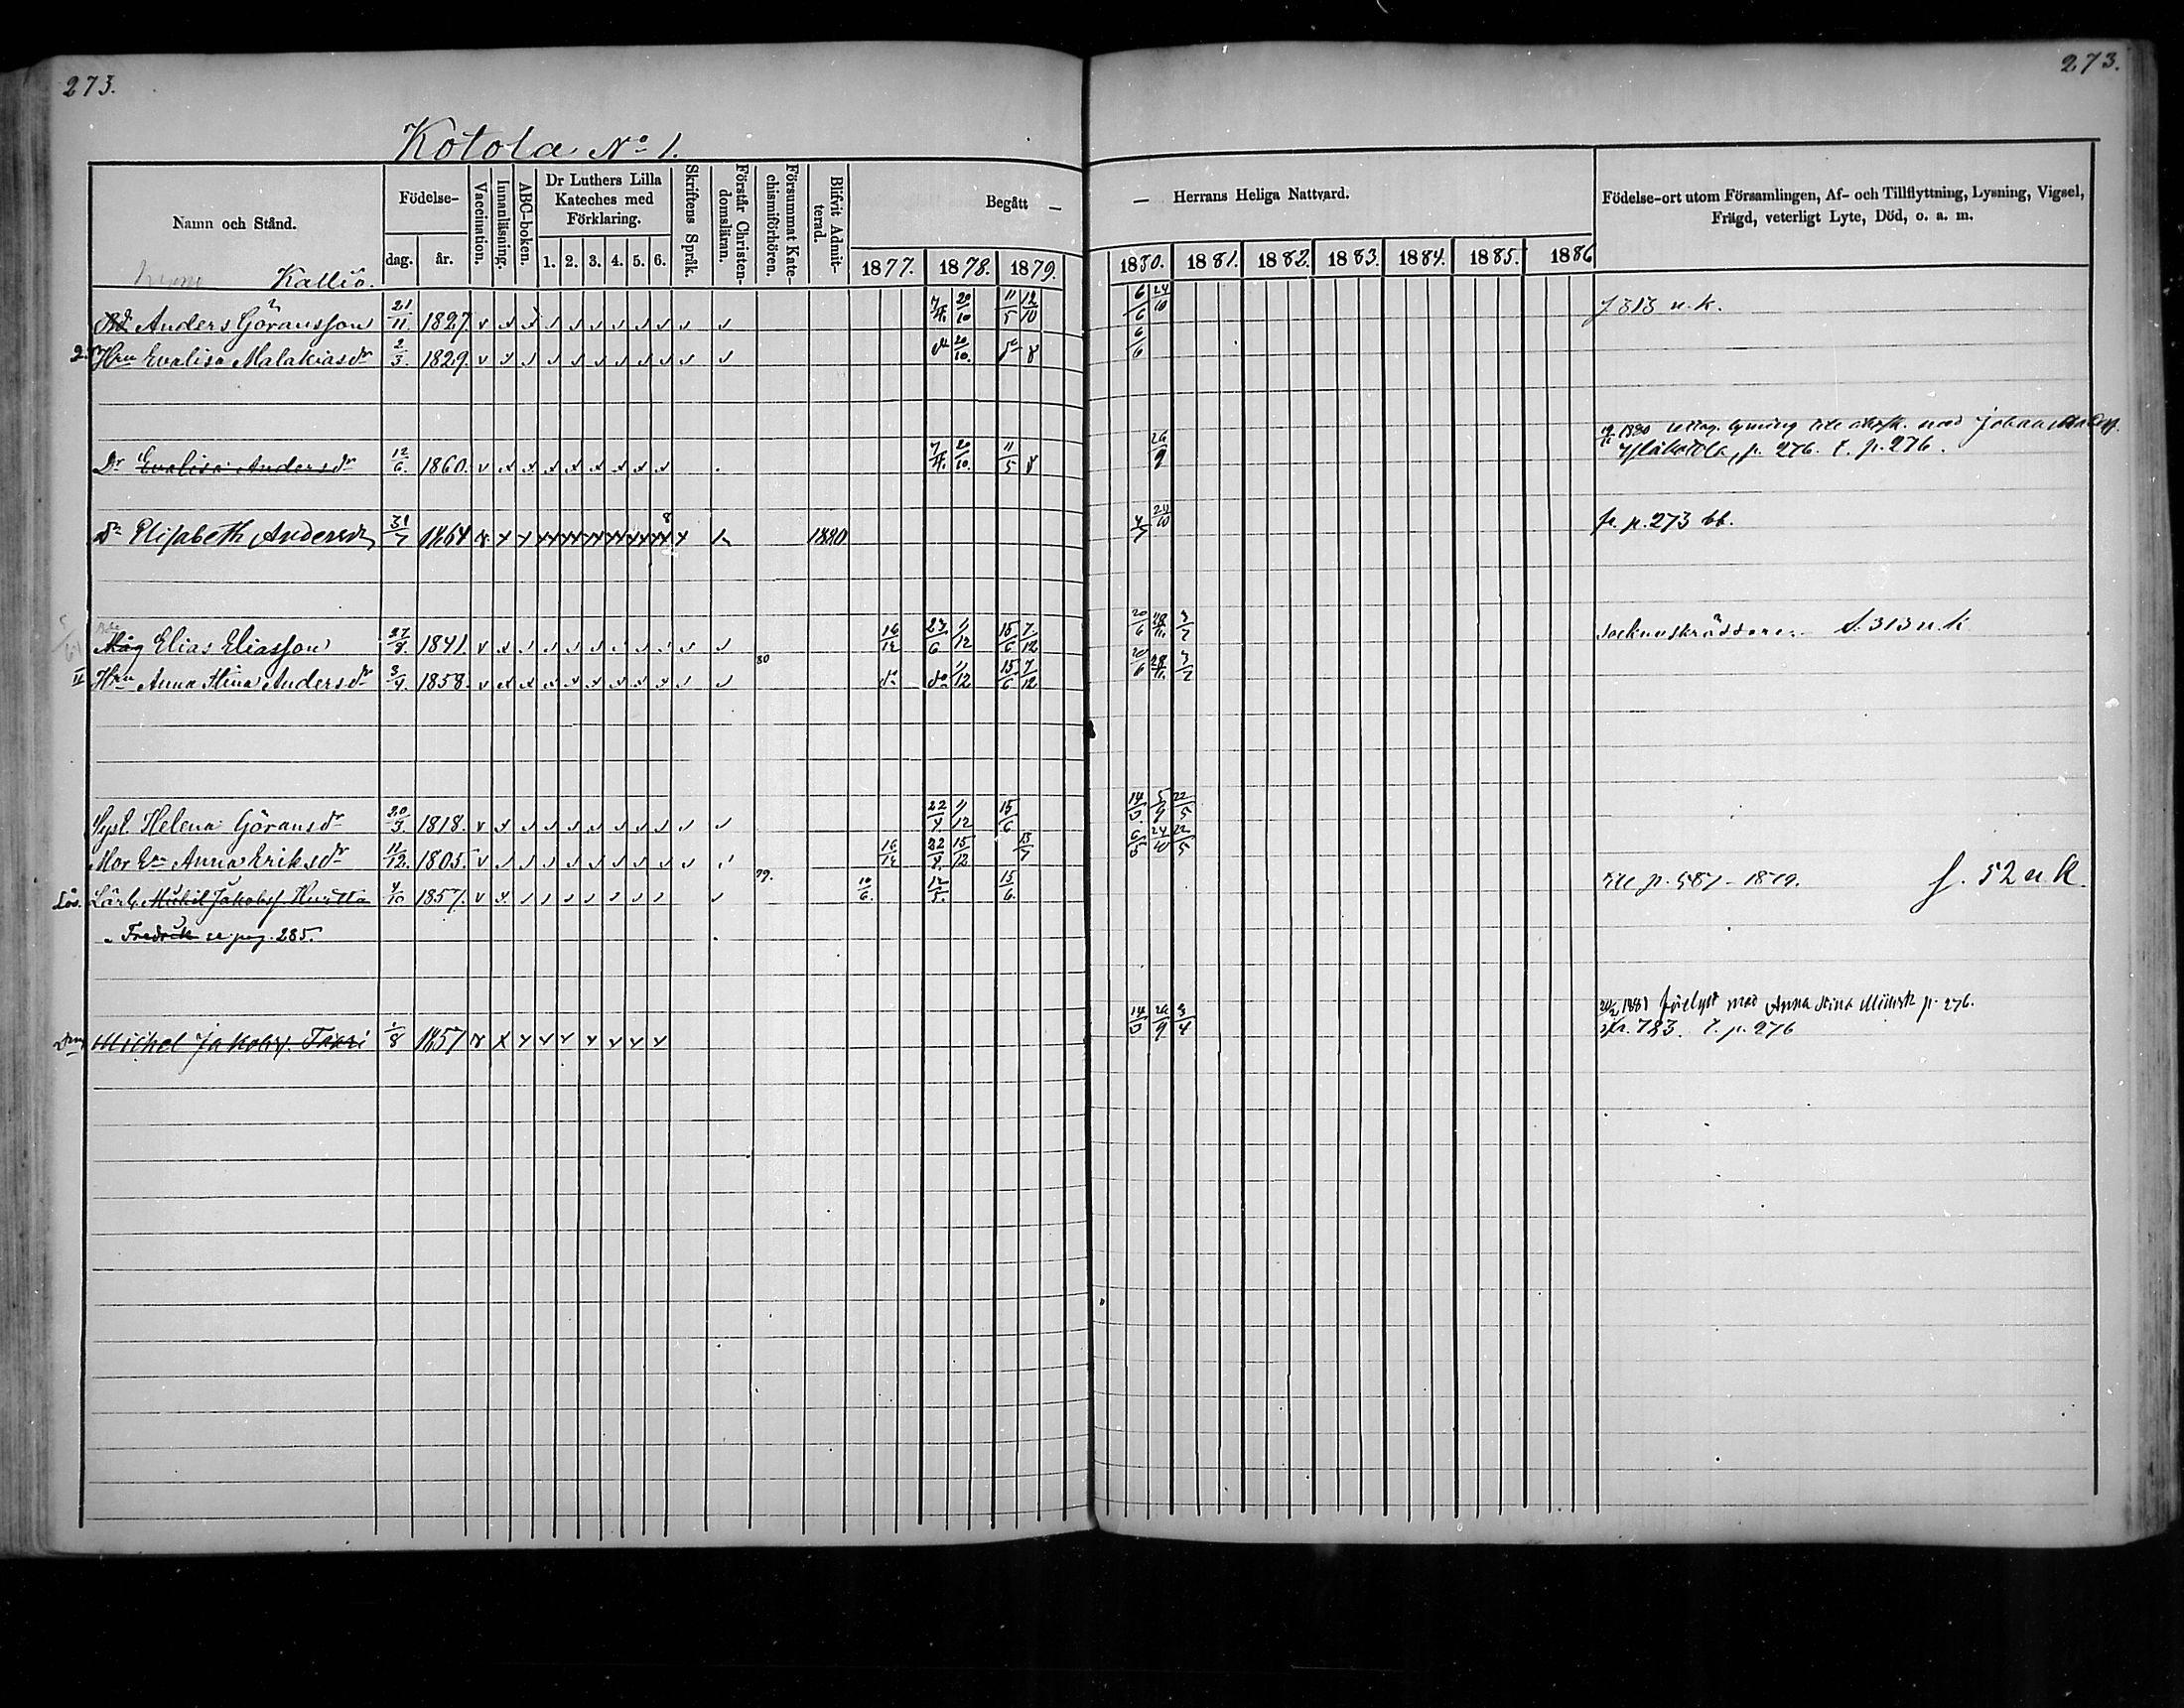 273.
273.
Kotola No 1.
Namn och Stånd.
Födelse-
dag.
år.
Vaccination.
Innanläsning.
ABC-boken.
Dr Luthers Lilla Kateches med Förklaring.
1. 2. 3. 4. 5. 6.
Skriftens Språk.
Förstår Christendomsläran.
Försummat Katechismiförhören.
Blifvit Admitterad.
Begått —
— Herrans Heliga Nattvard.
1877. 1878. 1879. 1880. 1881. 1882. 1883. 1884. 1885. 1886
Födelse-ort utom Församlingen, Af- och Tillflyttning, Lysning, Vigsel,
Frägd, veterligt Lyte, Död, o. a. m.
Kallio.
Anders Göransson 21/11. 1827. 7/4. 20/10 11/5 12/10 6/6 24/10 f 313 u.k.
Hru Evalisa Malakiasdr 2/3. 1829. 20/10. 6/6
Dr Evalisa Andersdr 12/6. 1860. 7/4. 20/10. 11/5 26/9 1880 lysning med Johan
p. 276. t. p. 276.
Dr Elisabeth Andersdr 31/7 1864 8 1880 4/7 24/10 fr. p. 273 bb.
Måg Elias Eliasson 27/8. 1841. 16/12 23/6 1/12 15/6 7/12 20/6 28/11. 3/7 Sockneskräddare. S. 313 u.k
Hru Anna Stina Andersdr 3/4 1858. 80 do do 1/12 15/6 7/12 20/6 28/11. 3/7
Syst. Helena Göransdr 20/3 1818. 22/4 1/12 15/6 14/3 5/9 22/5
Mor Anna Eriksdr 11/12. 1805. 16/12 22/4. 15/12 13/7 6/5 24/10 22/5
Lös. Lärl. Mickel Jakobss. Huitta 4/10 1857. 79. 10/6. 12/5. 15/6. till p. 587 - 1879. f. 52 u.k.
" Fredrik se pag. 285.
Dräng Michel Jakobss. 1/8 1857 14/3 26/9 3/4 1881 förlyst med Anna Stina p. 276.
783. t. p. 276